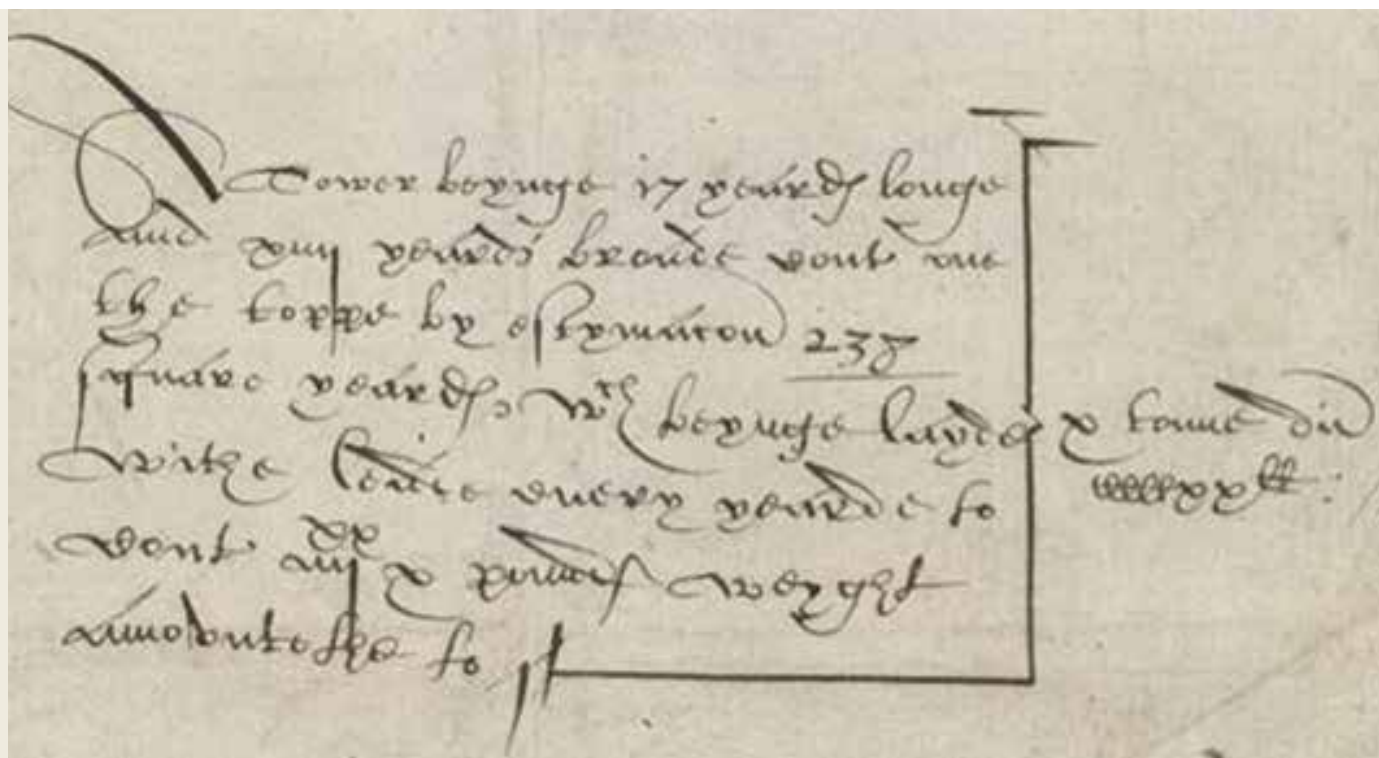 Tower beynge 17 yeards longe
and xiiij yeards broade cont one
the toppe by estymacon 238
square yeards, wch beynge layde
withe leade every yearde to
cont iiijxx x pounds weyght
amountethe to
x tonne di
CCCCxx ll